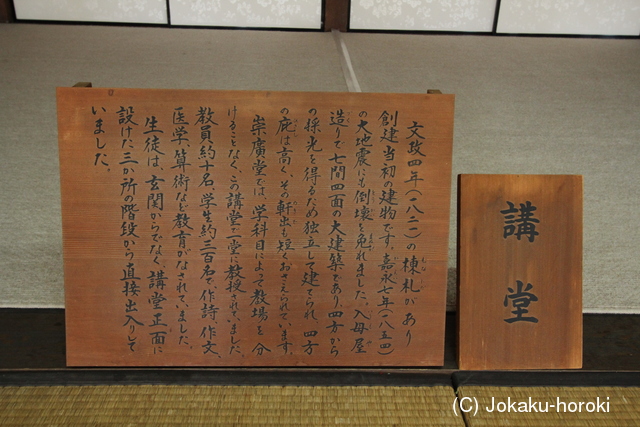 文政四年（一八二一）の棟札があり
創建当初の建物です。嘉永七年（一八五四）
の大地震にも倒壊を免れました。入母屋
造りで七間四面の大建築であり、四方から
の採光を得るため独立して建てられ、四方
の庇は高く、その軒出も短くおさえられています。
崇廣堂では、学科目によって教場を分
けることなく、この講堂で一堂に教授されてました。
教員約十名、学生約三百名で、作詩、作文、
医学、算術など教育がなされていました。
生徒は、玄関からでなく、講堂正面に
設けた三か所の階段から直接出入りして
いました。
講堂
(C) Jokaku-horoki